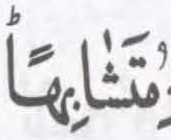 وَمُتَشَابِهًا ؕ